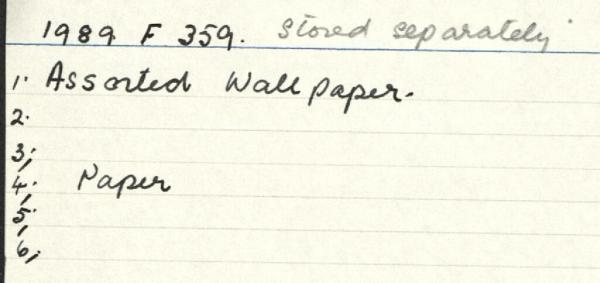 1989 F 359. Stored separately
1. Assorted Wallpaper.
2.
3;
4; Paper
5;
6;